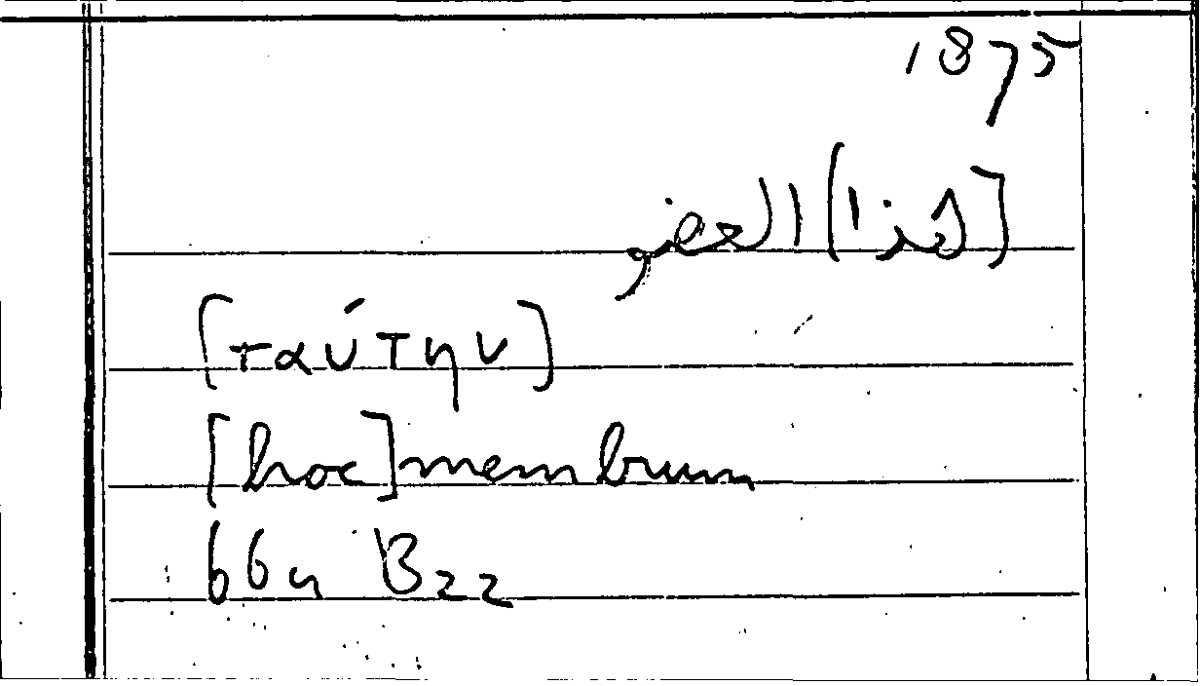 1875
[هذا] العضو
[ταύτην]
[hoc] membrum
664 B22